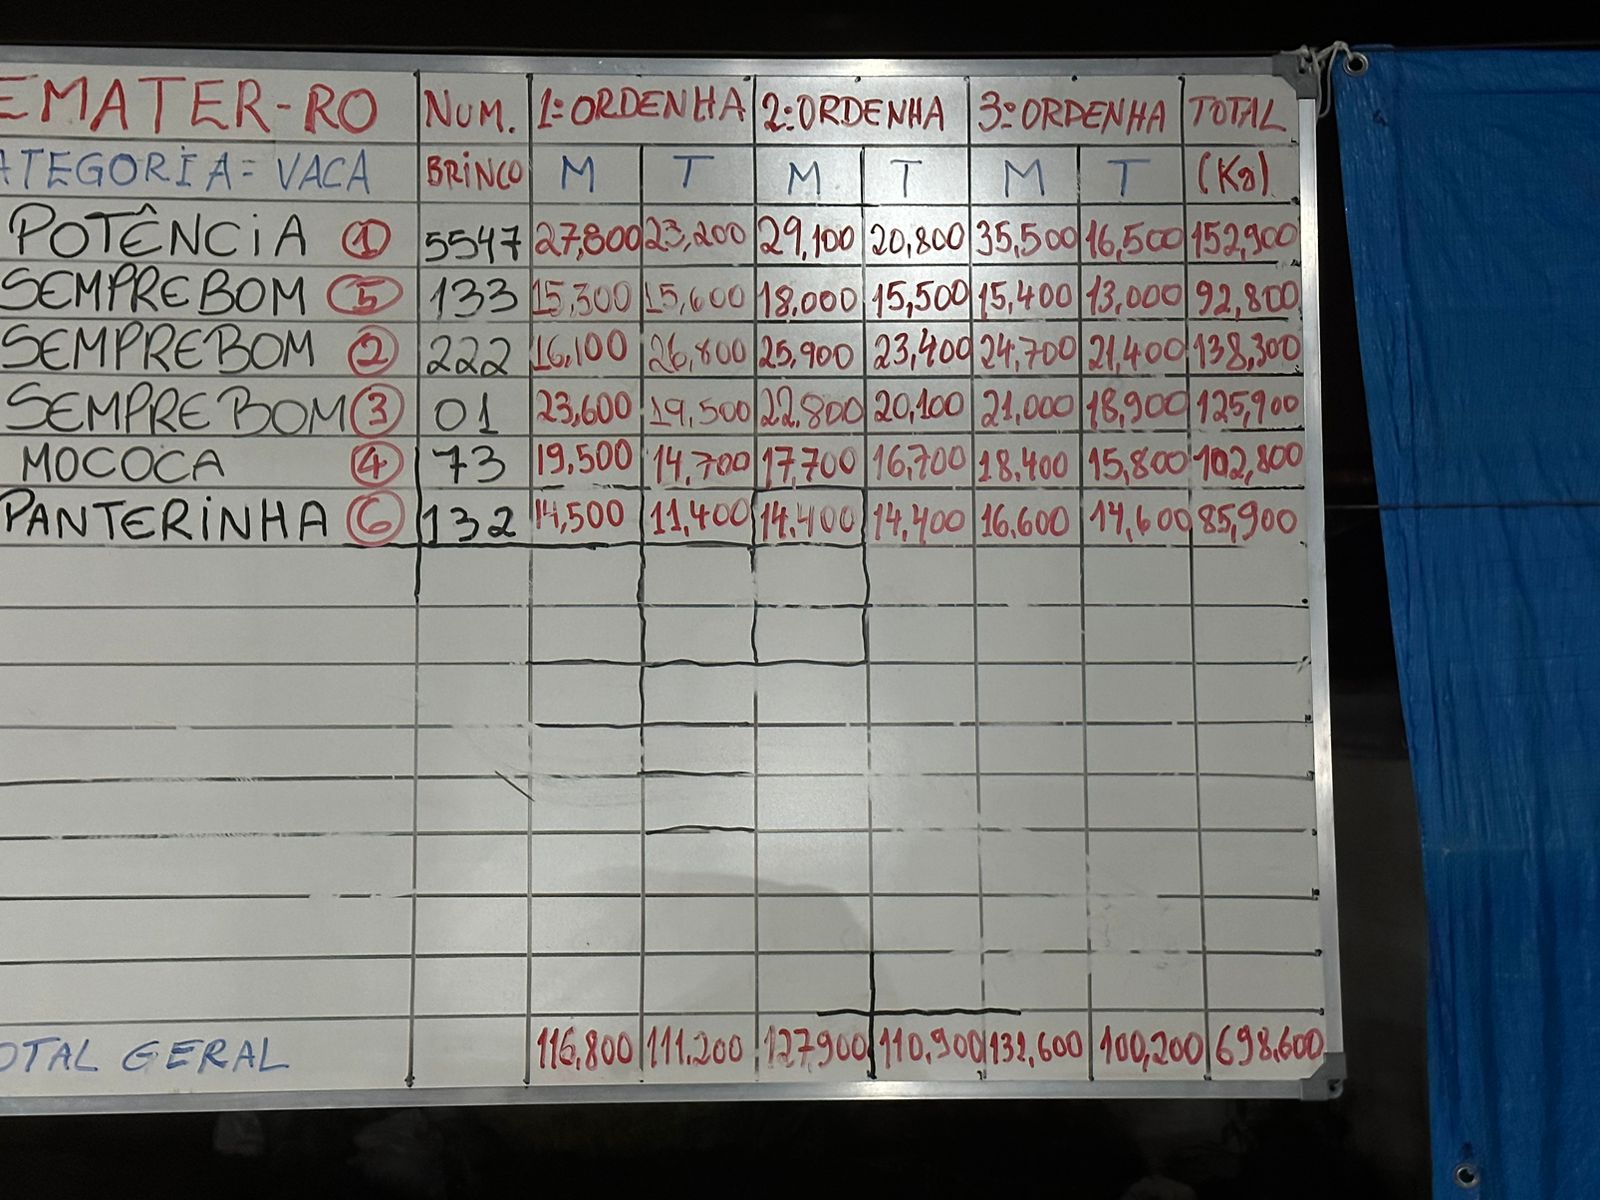 EMATER-RO NUM. 1ª ORDENHA 2ª ORDENHA 3ª ORDENHA TOTAL
ATEGORIA = VACA BRINCO M T M T M T (Kg)
POTÊNCIA 1 5547 27,800 23,200 29,100 20,800 35,500 16,500 152,900
SEMPRE BOM 5 133 15,300 15,600 18,000 15,500 15,400 13,000 92,800
SEMPRE BOM 2 222 16,100 26,800 25,900 23,400 24,700 21,400 138,300
SEMPRE BOM 3 01 23,600 19,500 22,800 20,100 21,000 18,900 125,900
MOCOCA 4 73 19,500 14,700 17,700 16,700 18,400 15,800 102,800
PANTERINHA 6 132 14,500 11,400 14,400 14,400 16,600 14,600 85,900
OTAL GERAL 116,800 111,200 127,900 110,900 131,600 100,200 698,600